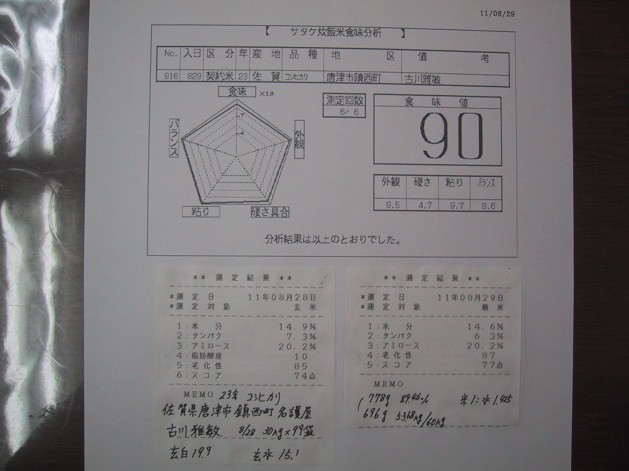 11/08/29
【 サタケ炊飯米食味分析 】
No. 入日 区分 年 産地 品種 地区 備考
916 829 契約米 23 佐賀 コシヒカリ 唐津市鎮西町 古川雅敏
食味 ×10
バランス
外観
粘り
硬さ具合
測定回数
6/ 6
食味値
90
外観 硬さ 粘り バランス
9.5 4.7 9.7 9.6
分析結果は以上のとおりでした。
** 測定結果 **
*測定日 11年08月28日
*測定対象 玄米
1:水分 14.9%
2:タンパク 7.3%
3:アミロース 20.2%
4:脂肪酸度 10
5:老化性 85
6:スコア 74点
MEMO 23年 コシヒカリ
佐賀県唐津市鎮西町名護屋
古川雅敏 8/28 30kg×99袋
玄白19.9 玄水15.1
** 測定結果 **
*測定日 11年08月29日
*測定対象 精米
1:水分 14.6%
2:タンパク 6.3%
3:アミロース 20.2%
4:老化性 87
5:スコア 77点
MEMO
778g 89.46%
696g 53.68kg/60kg
米1:水1.425